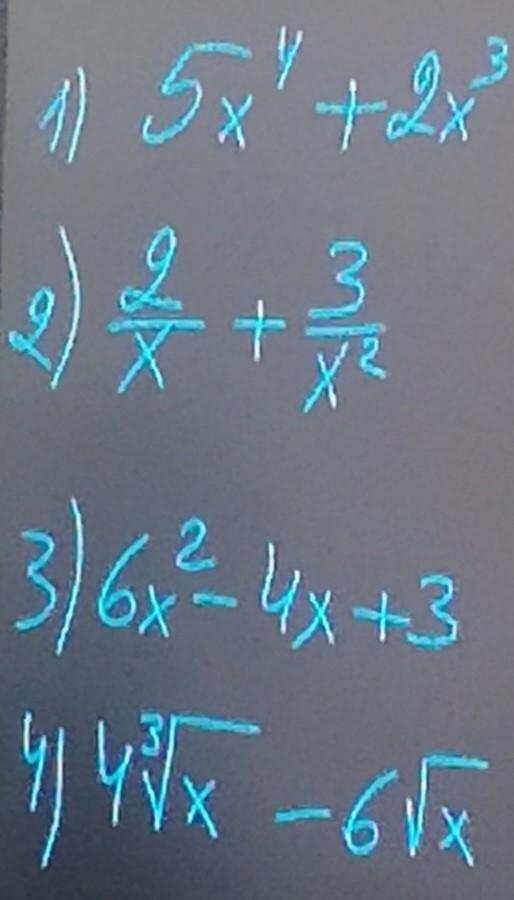 1) 5x⁴ + 2x³
2) 2/x + 3/x²
3) 6x² - 4x + 3
4) 4∛x - 6√x